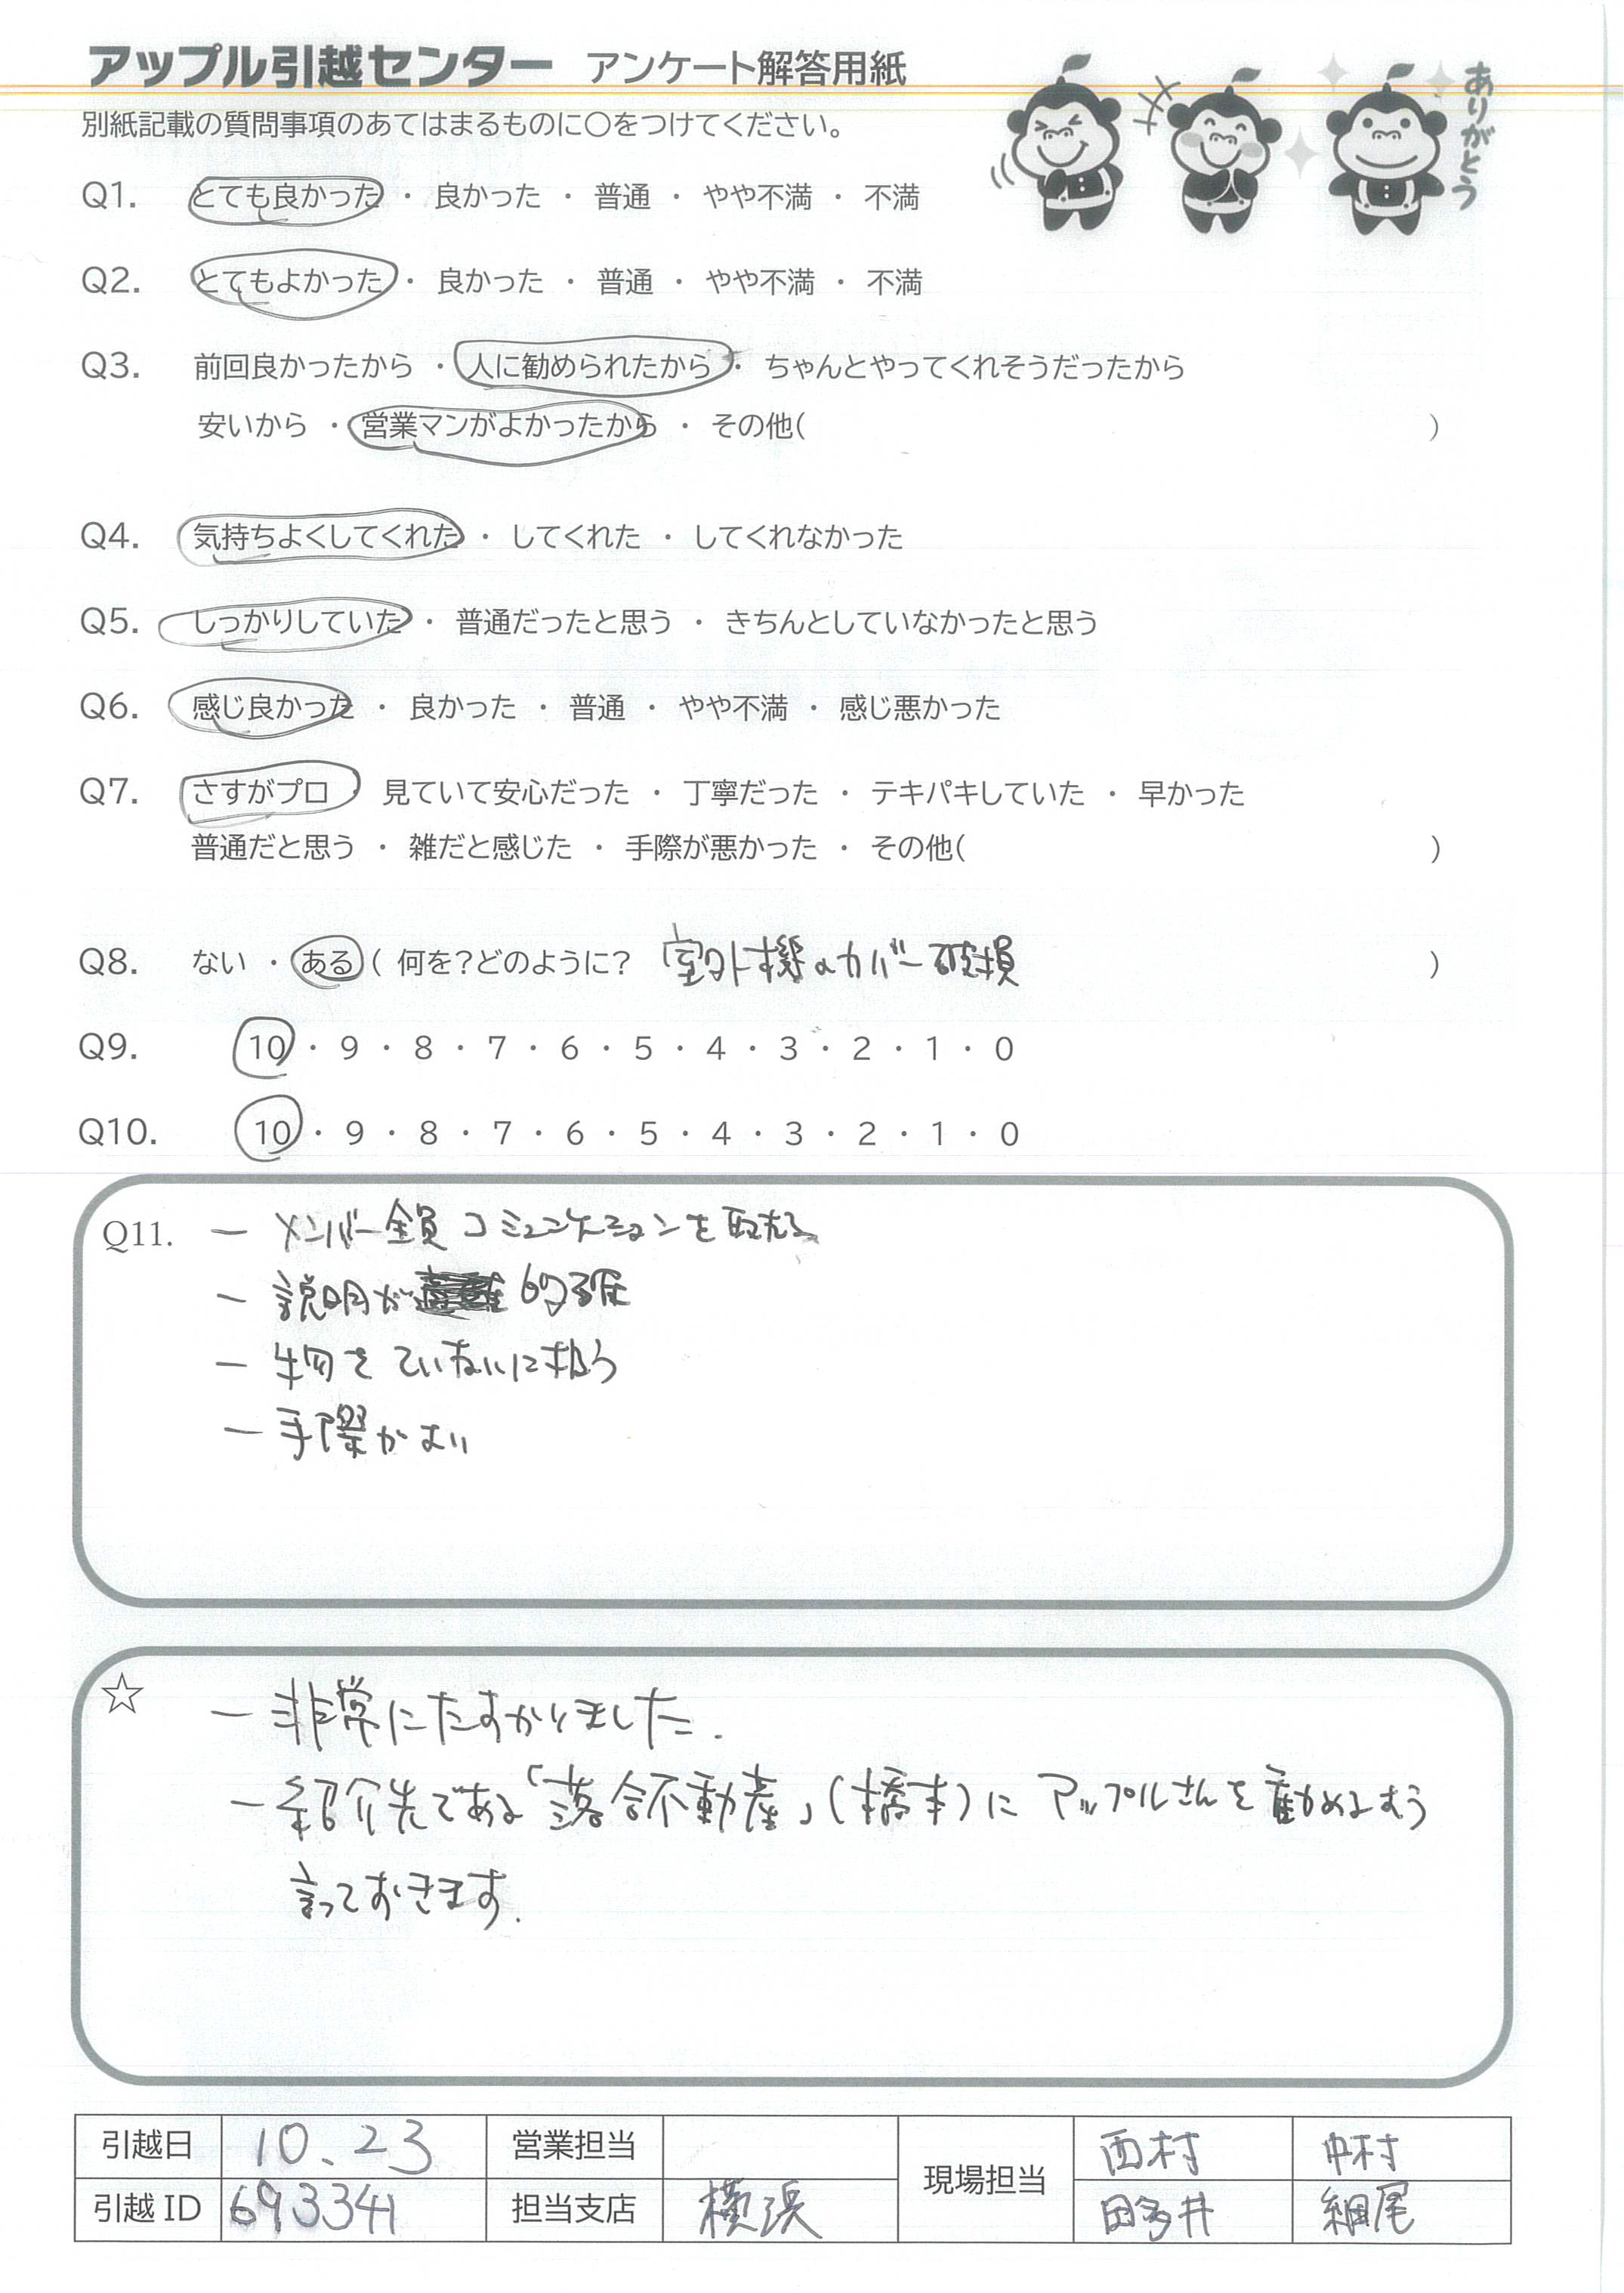 アップル引越センター アンケート解答用紙
ありがとう
別紙記載の質問事項のあてはまるものに〇をつけてください。
Q1. とても良かった ・ 良かった ・ 普通 ・ やや不満 ・ 不満
Q2. とてもよかった ・ 良かった ・ 普通 ・ やや不満 ・ 不満
Q3. 前回良かったから ・ 人に勧められたから ・ ちゃんとやってくれそうだったから
安いから ・ 営業マンがよかったから ・ その他( )
Q4. 気持ちよくしてくれた ・ してくれた ・ してくれなかった
Q5. しっかりしていた ・ 普通だったと思う ・ きちんとしていなかったと思う
Q6. 感じ良かった ・ 良かった ・ 普通 ・ やや不満 ・ 感じ悪かった
Q7. さすがプロ 見ていて安心だった ・ 丁寧だった ・ テキパキしていた ・ 早かった
普通だと思う ・ 雑だと感じた ・ 手際が悪かった ・ その他( )
Q8. ない ・ ある ( 何を?どのように? 室外機のカバー破損 )
Q9. 10 ・ 9 ・ 8 ・ 7 ・ 6 ・ 5 ・ 4 ・ 3 ・ 2 ・ 1 ・ 0
Q10. 10 ・ 9 ・ 8 ・ 7 ・ 6 ・ 5 ・ 4 ・ 3 ・ 2 ・ 1 ・ 0
Q11. ー メンバー全員コミュニケーションを取れる
ー 説明が 的確
ー 物をていねいに扱う
ー 手際がよい
☆ ー 非常にたすかりました.
ー 紹介先である「落合不動産」(橋本)に アップルさんを勧めるよう
言っておきます.
引越日 10.23 営業担当 現場担当 西村 中村
引越ID 693341 担当支店 横浜 田多井 細尾